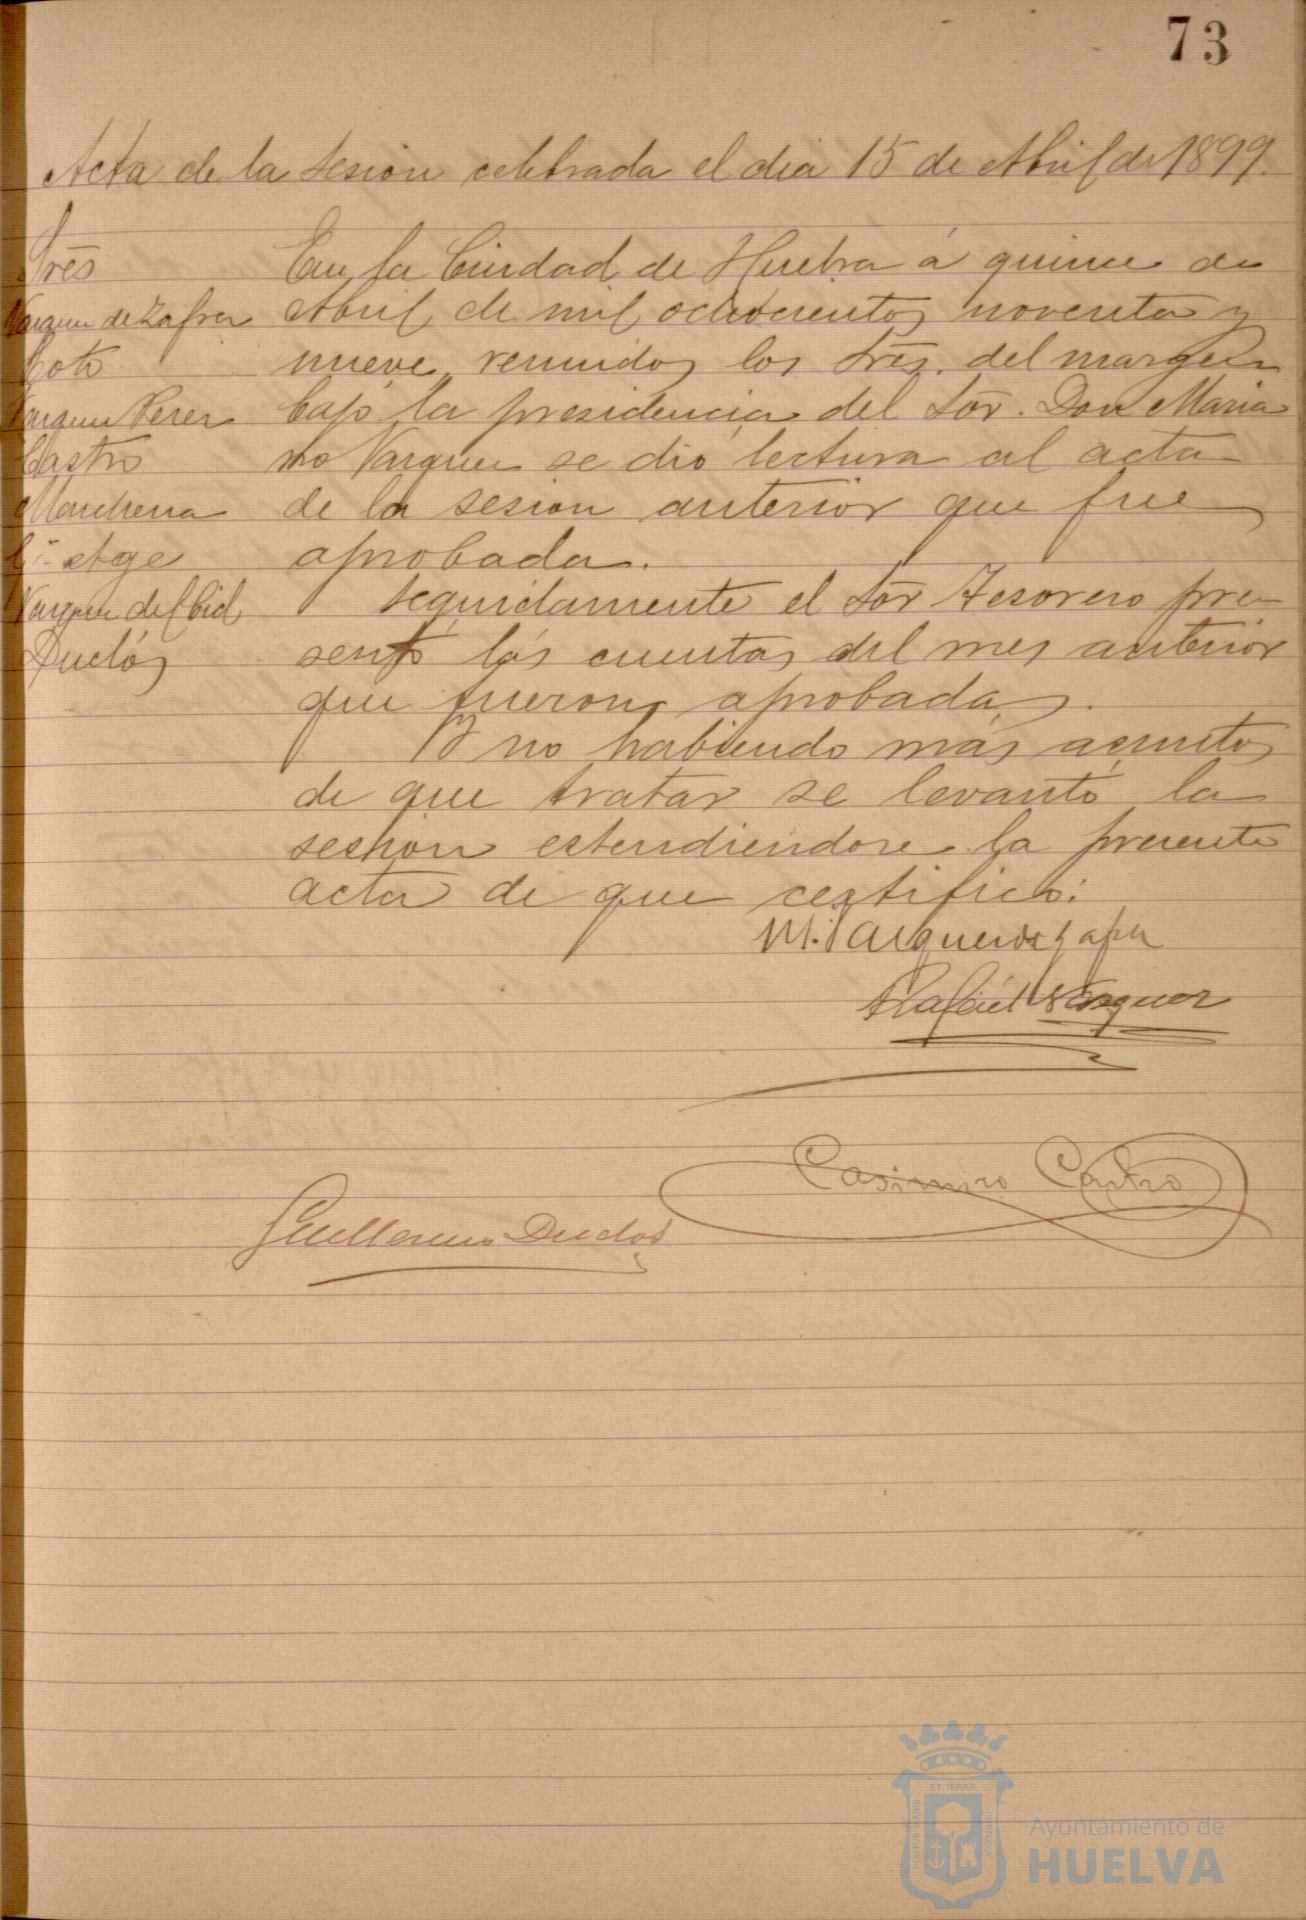 73
Acta de la sesion celebrada el dia 15 de Abril de 1899.
Sres
Vazquez de Zafra
Coto
Vazquez Perez
Castro
Marchena
Gª Age
Vazquez del Cid
Duclós
En la Ciudad de Huelva á quince de
Abril de mil ochocientos noventa y
nueve, reunidos los Sres. del margen
bajo la presidencia del Sor. Don Maria
no Vazquez se dió lectura al acta
de la sesion anterior que fue
aprobada.
Seguidamente el Sor Tesorero pre
sentó las cuentas del mes anterior
que fueron aprobadas.
Y no habiendo más asuntos
de que tratar se levantó la
sesion estendiendose la presente
acta de que certifico:
M. Vazquez de Zafra
Rafaél Vazquez
Casimiro Castro
Guillermo Duclos
ET TERRÆ
PORTUS MARIS
CUSTODIA
Ayuntamiento de
HUELVA